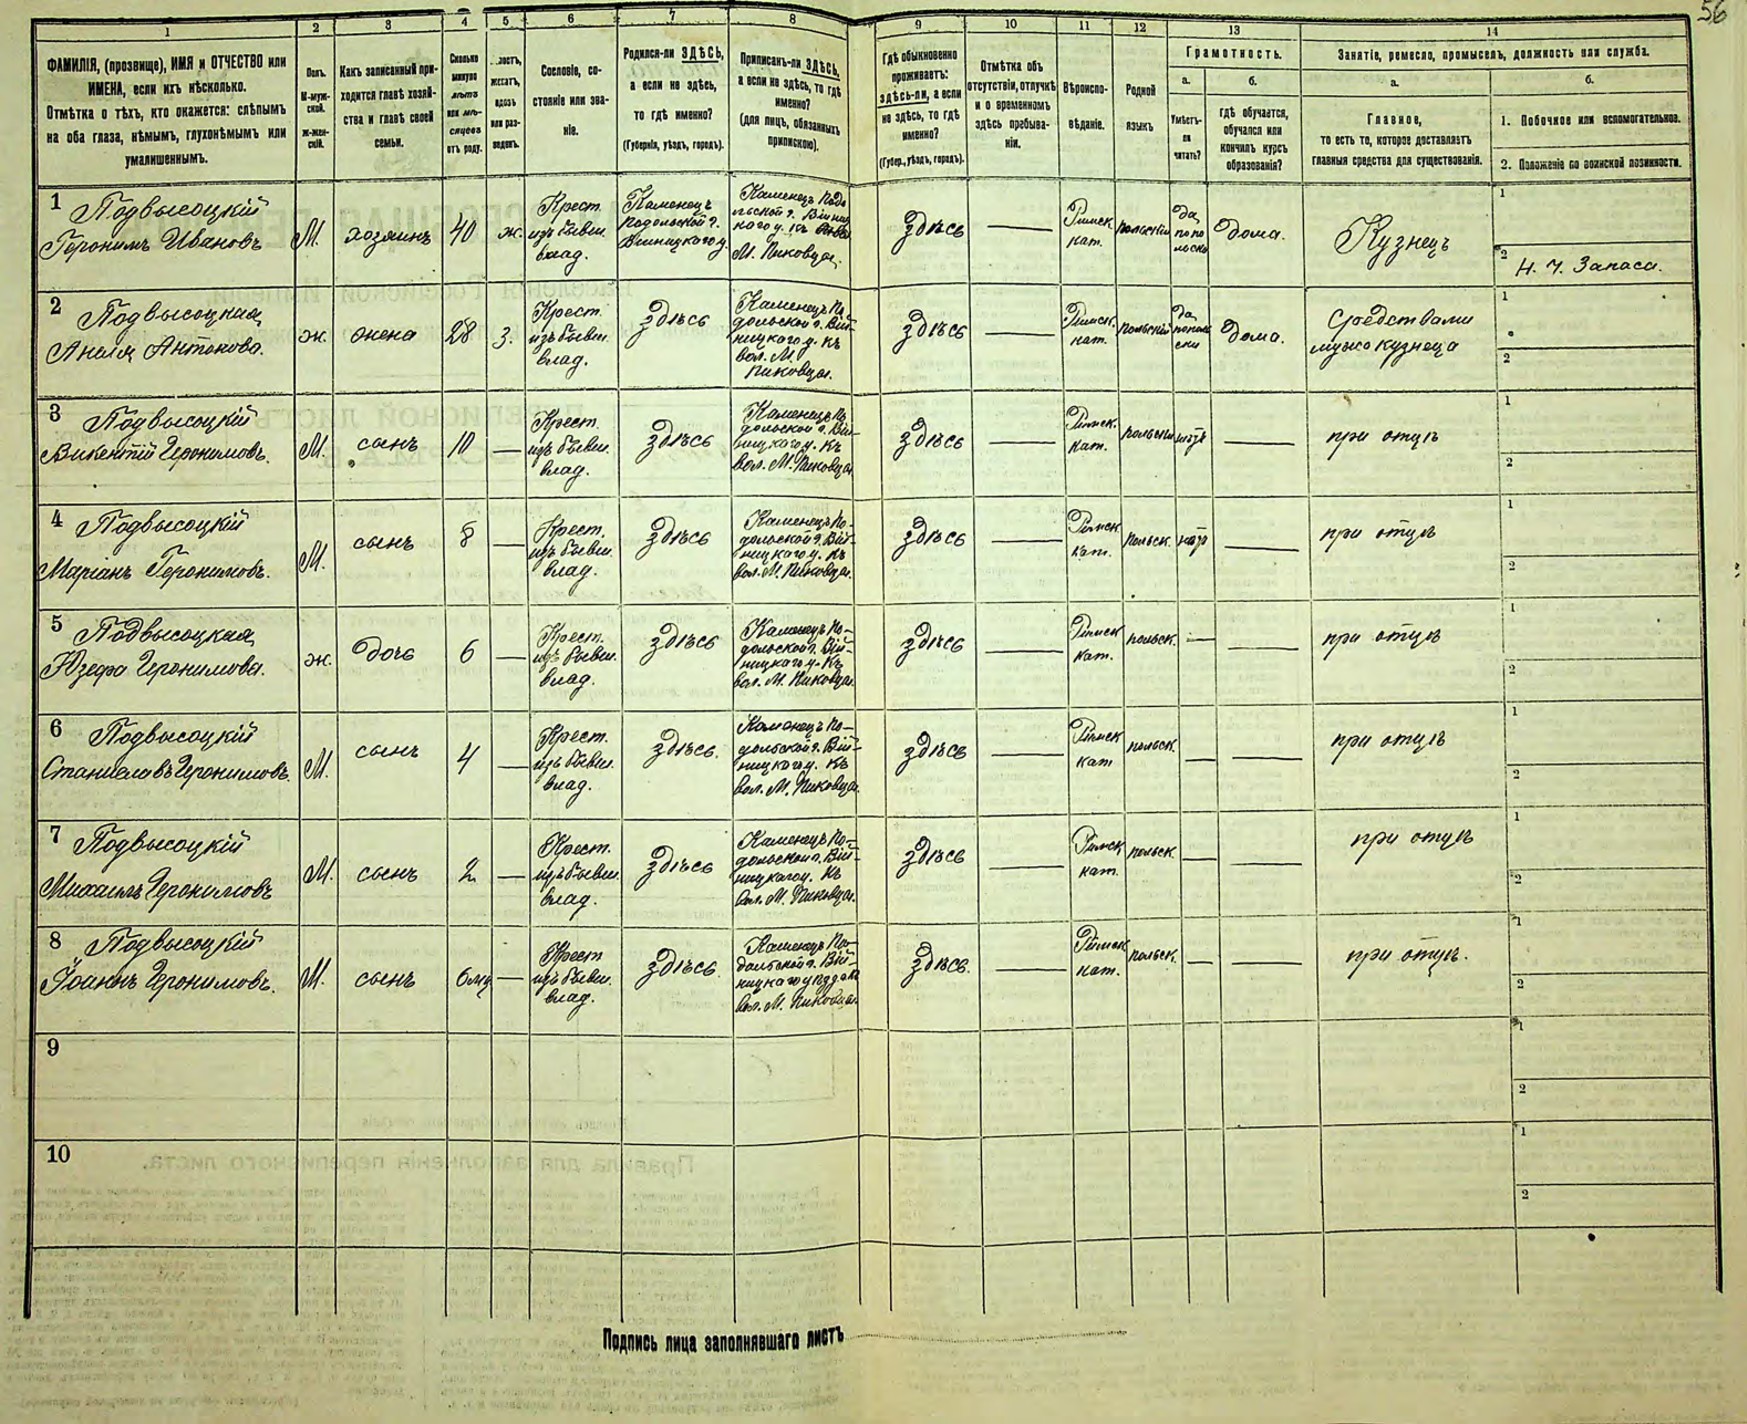 56
1 2 3 4 5 6 7 8 9 10 11 12 13 14
ФАМИЛІЯ, (прозвище), ИМЯ и ОТЧЕСТВО или
ИМЕНА, если ихъ нѣсколько.
Отмѣтка о тѣхъ, кто окажется: слѣпымъ
на оба глаза, нѣмымъ, глухонѣмымъ или
умалишеннымъ.
Полъ.
М-муж-
ской.
Ж-жен-
скій.
Какъ записанный при-
ходится главѣ хозяй-
ства и главѣ своей
семьи.
Сколько
минуло
лѣтъ
или мѣ-
сяцевъ
отъ роду.
женатъ,
вдовъ
или раз-
веденъ.
Сословіе, со-
стояніе или зва-
ніе.
Родился-ли ЗДѢСЬ,
а если не здѣсь,
то гдѣ именно?
(Губернія, уѣздъ, городъ).
Приписанъ-ли ЗДѢСЬ,
а если не здѣсь, то гдѣ
именно?
(для лицъ, обязанныхъ
припискою).
Гдѣ обыкновенно
проживаетъ:
здѣсь-ли, а если
не здѣсь, то гдѣ
именно?
(Губер., уѣздъ, городъ).
Отмѣтка объ
отсутствіи, отлучкѣ
и о временномъ
здѣсь пребыва-
ніи.
Вѣроиспо-
вѣданіе.
Родной
языкъ
Грамотность.
а.
Умѣетъ-
ли
читать?
б.
гдѣ обучается,
обучался или
кончилъ курсъ
образованія?
Занятіе, ремесло, промыселъ, должность или служба.
а.
Главное,
то есть то, которое доставляетъ
главныя средства для существованія.
б.
1. Побочное или вспомогательное.
2. Положеніе по воинской повинности.
1 Подвысоцкій
Геронимъ Ивановъ
М.
хозяинъ
40
ж.
Крест.
изъ бывш.
влад.
Каменецъ
Подольской г.
Винницкаго у.
Каменецъ Подо
льской г. Винниц
каго у. къ
М. Пиковца.
здѣсь
Римск.
кат.
польскій
да,
по по
льски
дома.
Кузнецъ
1
2
Н. Ч. Запаса.
2 Подвысоцкая
Анеля Антонова.
ж.
жена
28
з.
Крест.
изъ бывш.
влад.
здѣсь
Каменецъ По
дольской г. Вин-
ницкаго у. къ
вол. М.
Пиковца.
здѣсь
Римск.
кат.
польскій
да,
по поль
ски
дома.
Средствами
мужа кузнеца
1
2
3 Подвысоцкій
Викентій Геронимовъ.
М.
сынъ
10
Крест.
изъ бывш.
влад.
здѣсь
Каменецъ По
дольской г. Вин-
ницкаго у. къ
вол. М. Пиковца
здѣсь
Римск.
кат.
польскій
нѣтъ
при отцѣ
1
2
4 Подвысоцкій
Маріанъ Геронимовъ.
М.
сынъ
8
Крест.
изъ бывш.
влад.
здѣсь
Каменецъ По-
дольской г. Вин-
ницкаго у. къ
вол. М. Пиковца.
здѣсь
Римск
кат.
польск.
нѣтъ
при отцѣ
1
2
5 Подвысоцкая
Юзефа Геронимова.
ж.
дочь
6
Крест.
изъ бывш.
влад.
здѣсь
Каменецъ По-
дольской г. Вин-
ницкаго у. къ
вол. М. Пиковца.
здѣсь
Римск
кат.
польск.
при отцѣ
1
2
6 Подвысоцкій
Станиславъ Геронимовъ.
М.
сынъ
4
Крест.
изъ бывш.
влад.
здѣсь.
Каменецъ По-
дольской г. Вин-
ницкаго у. къ
вол. М. Пиковца.
здѣсь
Римск
кат
польск.
при отцѣ
1
2
7 Подвысоцкій
Михаилъ Геронимовъ
М.
сынъ
2
Крест.
изъ бывш.
влад.
здѣсь
Каменецъ По-
дольской г. Вин-
ницкаго у. къ
вол. М. Пиковца.
здѣсь
Римск
кат.
польск.
при отцѣ
1
2
8 Подвысоцкій
Іоаннъ Геронимовъ.
М.
сынъ
6 мц
Крест
изъ бывш.
влад.
здѣсь.
Каменецъ По-
дольской г. Вин-
ницкаго у.
вол. М. Пиковца.
здѣсь.
Римск
кат.
польск.
при отцѣ.
1
2
9
1
2
10
1
2
Подпись лица заполнявшаго листъ